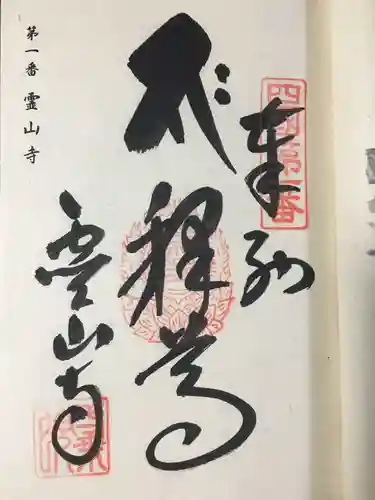 奉納
四国第一番
釋尊
霊山寺
第一番 霊山寺